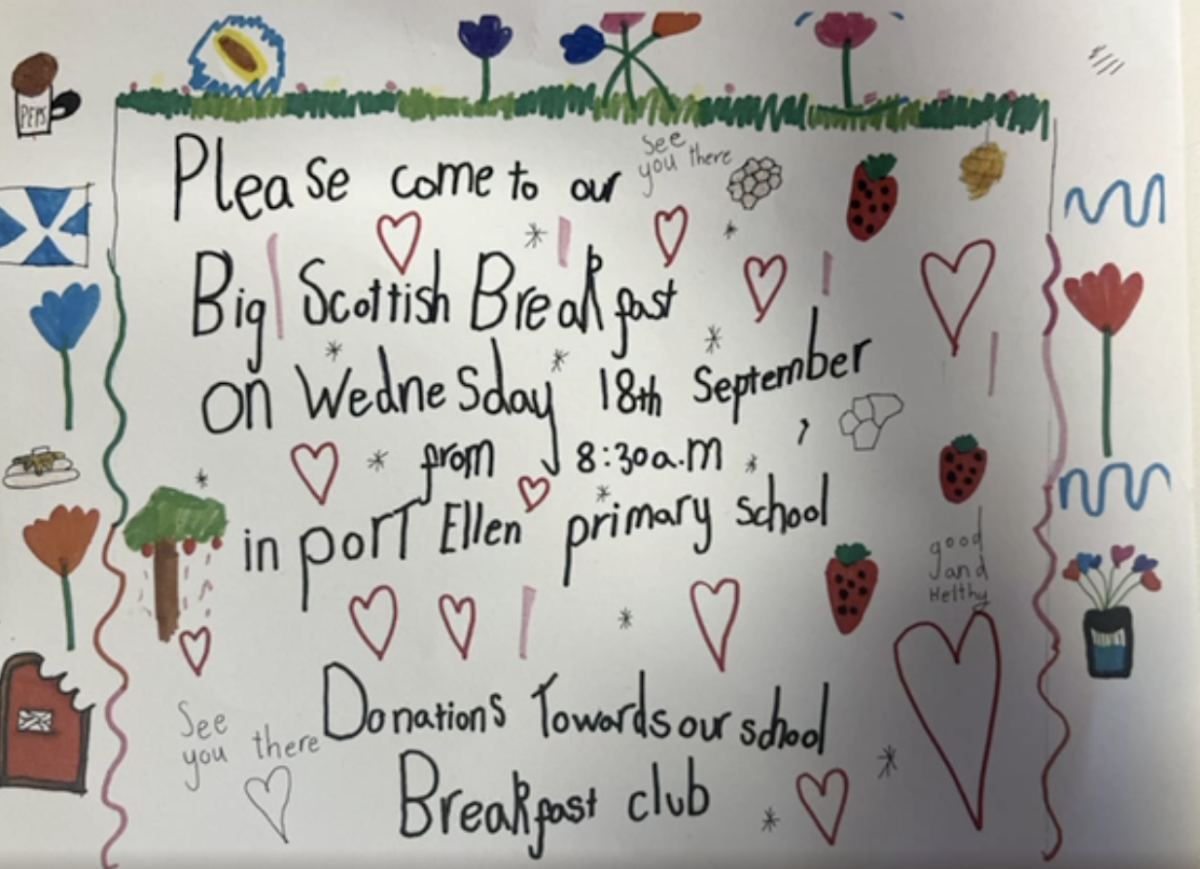 PEPS
See
you there
Please come to our
Big Scottish Breakfast
on Wednesday 18th September
from 8:30a.m
in port Ellen primary school
good
and
Helthy
Donations Towards our school
Breakfast club
See
you there